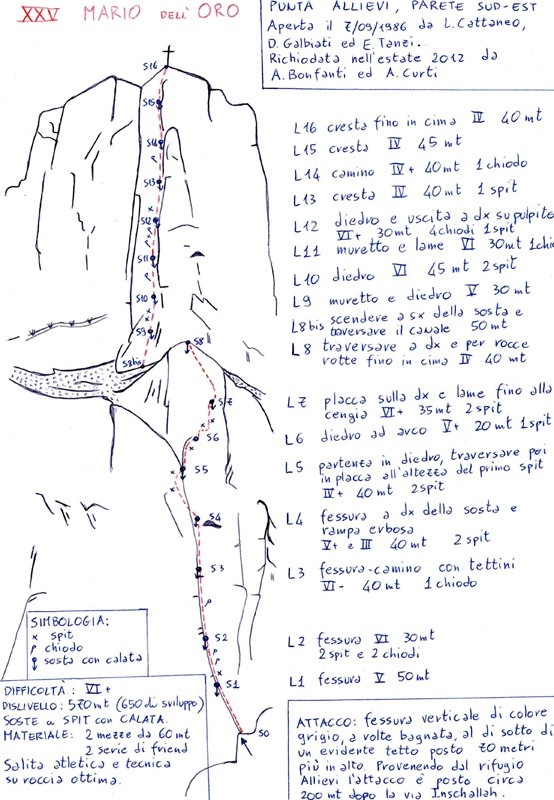 XXV MARIO DELL' ORO
PUNTA ALLIEVI, PARETE SUD-EST
Aperta il 7/09/1986 da L. Cattaneo,
D. Galbiati ed E. Tanzi.
Richiodata nell'estate 2012 da
A. Bonfanti ed A. Curti
L16 cresta fino in cima IV 40 mt
L15 cresta IV 45 mt
L14 camino IV+ 40mt 1 chiodo
L13 cresta IV 40 mt 1 spit
L12 diedro e uscita a dx su pulpito
VI+ 30mt 4 chiodi 1 spit
L11 muretto e lame VI 30mt 1 chi
L10 diedro VI 45 mt 2 spit
L9 muretto e diedro V 30 mt
L8bis scendere a sx della sosta e
traversare il canale 50 mt
L8 traversare a dx e per rocce
rotte fino in cima IV 40 mt
L7 placca sulla dx e lame fino alla
cengia VI+ 35 mt 2 spit
L6 diedro ad arco V+ 20 mt 1 spit
L5 partenza in diedro, traversare poi
in placca all'altezza del primo spit
IV+ 40 mt 2 spit
L4 fessura a dx della sosta e
rampa erbosa
V+ e III 40 mt 2 spit
L3 fessura-camino con tettini
VI- 40 mt 1 chiodo
L2 fessura VI 30 mt
2 spit e 2 chiodi
L1 fessura V 50 mt
ATTACCO: fessura verticale di colore
grigio, a volte bagnata, al di sotto di
un evidente tetto posto 70 metri
più in alto. Provenendo dal rifugio
Allievi l'attacco è posto circa
200 mt dopo la via Inschallah.
S16
S15
S14
S13
S12
S11
S10
S9
S8bis
S8
S7
S6
S5
S4
S3
S2
S1
S0
SIMBOLOGIA:
x spit
chiodo
sosta con calata
DIFFICOLTÀ: VI+
DISLIVELLO: 570 mt (650 di sviluppo)
SOSTE a SPIT con CALATA.
MATERIALE: 2 mezze da 60 mt
2 serie di friend
Salita atletica e tecnica
su roccia ottima.